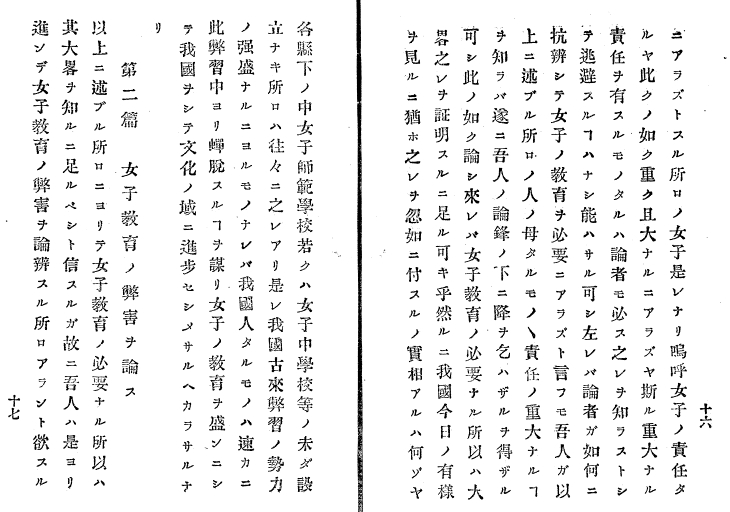 ニアラズトスル所ロノ女子是レナリ嗚呼女子ノ責任タ
ルヤ此クノ如ク重ク且大ナルニアラズヤ斯ル重大ナル
責任ヲ有スルモノタルハ論者モ必ス之レヲ知ラストシ
テ逃避スルヿハナシ能ハサル可シ左レバ論者ガ如何ニ
抗辨シテ女子ノ教育ヲ必要ニアラズト言フモ吾人ガ以
上ニ述ブル所ロノ人ノ母タルモノヽ責任ノ重大ナルヿ
ヲ知ラバ遂ニ吾人ノ論鋒ノ下ニ降ヲ乞ハザルヲ得ザル
可シ此ノ如ク論シ來レバ女子教育ノ必要ナル所以ハ大
畧之レヲ証明スルニ足ル可キ乎然ルニ我國今日ノ有樣
ヲ見ルニ猶ホ之レヲ忽如ニ付スルノ實相アルハ何ゾヤ
十六
各縣下ノ中女子師範學校若クハ女子中學校等ノ未ダ設
立ナキ所ロハ往々ニ之レアリ是レ我國古來弊習ノ勢力
ノ强盛ナルニヨルモノナレバ我國人タルモノハ速カニ
此弊習中ヨリ蟬脫スルヿヲ謀リ女子ノ教育ヲ盛ンニシ
テ我國ヲシテ文化ノ域ニ進步セシメサルヘカラサルナ
リ
第二篇 女子教育ノ弊害ヲ論ス
以上ニ述ブル所ロニヨリテ女子教育ノ必要ナル所以ハ
其大畧ヲ知ルニ足ルベシト信スルガ故ニ吾人ハ是ヨリ
進ンデ女子教育ノ弊害ヲ論辨スル所ロアラント欲スル
十七